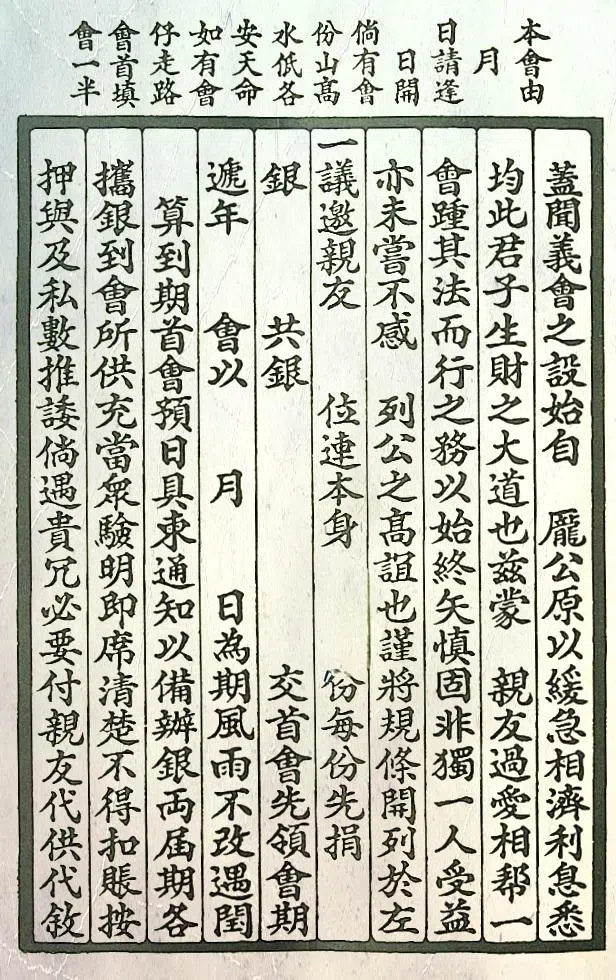 本會由
月
日請逢
日開
倘有會
份山高
水低各
安天命
如有會
仔走路
會首填
會一半
蓋聞義會之設始自　龐公原以緩急相濟利息悉
均此君子生財之大道也茲蒙　親友過愛相帮一
會踵其法而行之務以始終矢慎固非獨一人受益
亦未嘗不感　列公之高誼也謹將規條開列於左
一議邀親友　位連本身　份每份先捐
銀　共銀　交首會先領會期
遞年　會以　月　日為期風雨不改遇閏
算到期首會預日具柬通知以備辦銀両届期各
攜銀到會所供充當眾驗明即席清楚不得扣賬按
押與及私數推諉倘遇貴冗必要付親友代供代敘